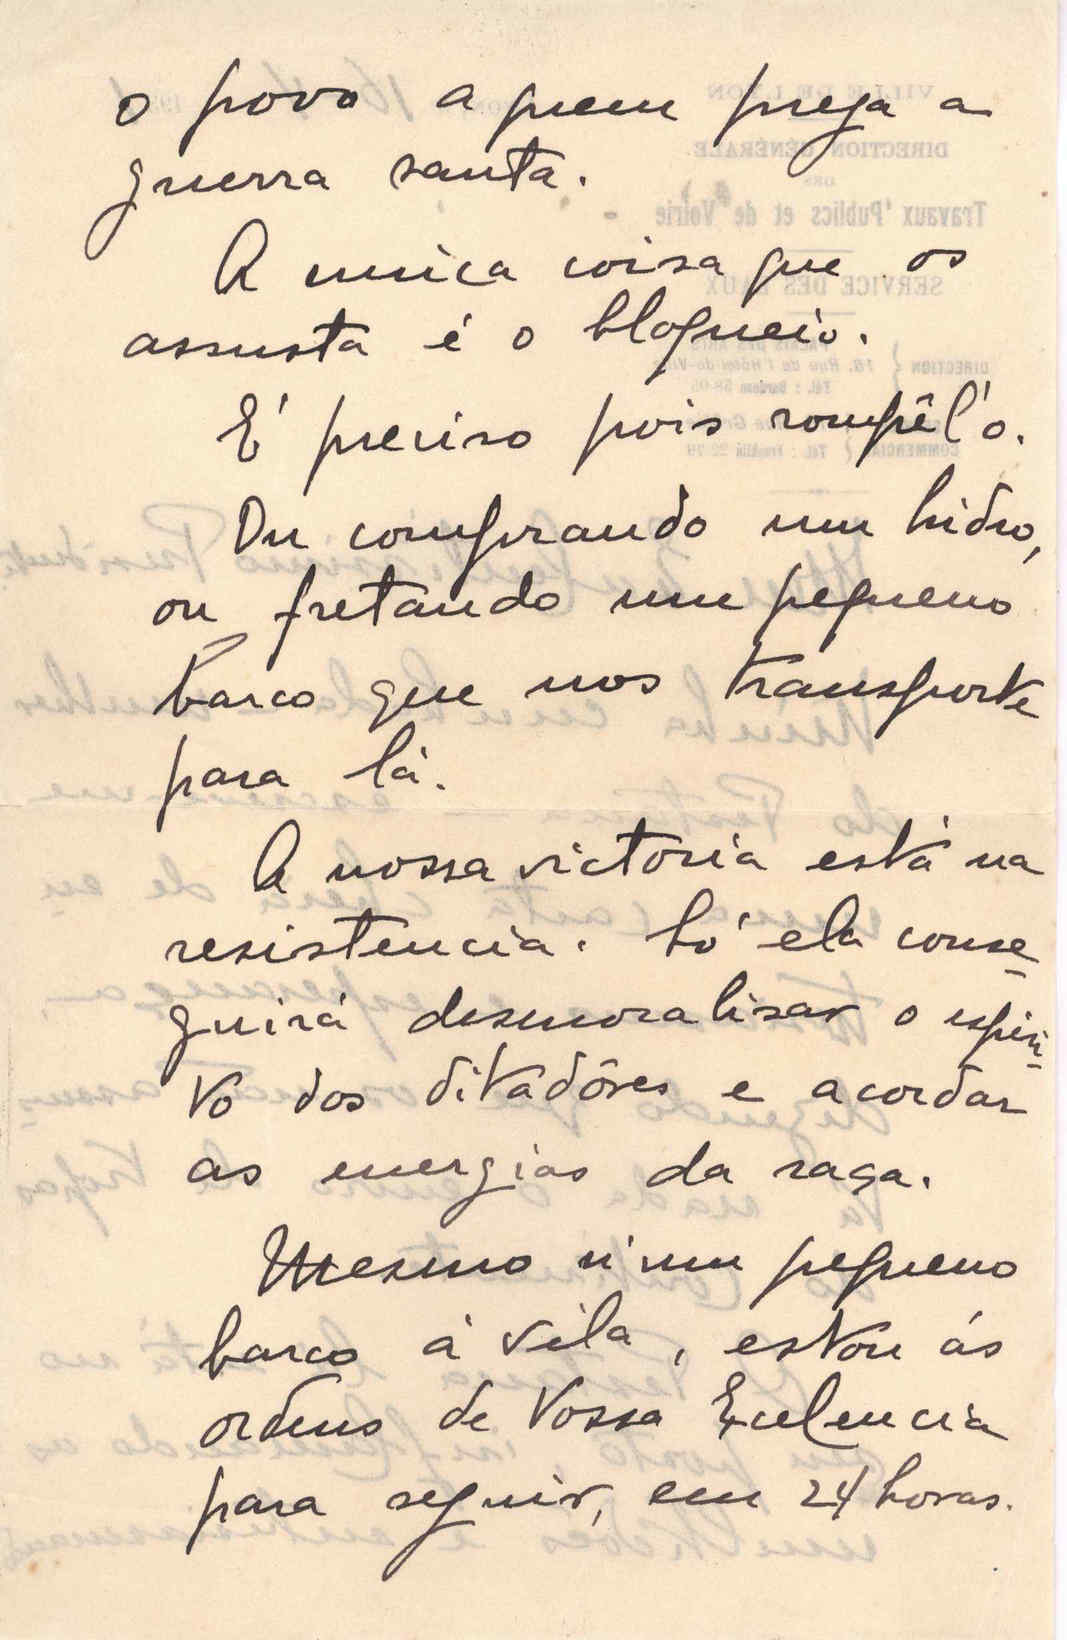 o povo a quem prega a
guerra santa.
A unica coisa que os
assusta é o bloqueio.
É preciso pois rompêl'o.
Ou comprando um hidro,
ou fretando um pequeno
barco que nos transporte
para lá.
A nossa victoria está na
resistencia. Só ela conse-
guirá desmoralisar o espiri-
to dos ditadôres e acordar
as energias da raça.
Mesmo n'um pequeno
barco á vela, estou ás
ordens de Vossa Exelencia
para seguir, em 24 horas.
VILLE DE LYON
DIRECTION GÉNÉRALE
DES
Travaux Publics et de Voirie
SERVICE DES EAUX